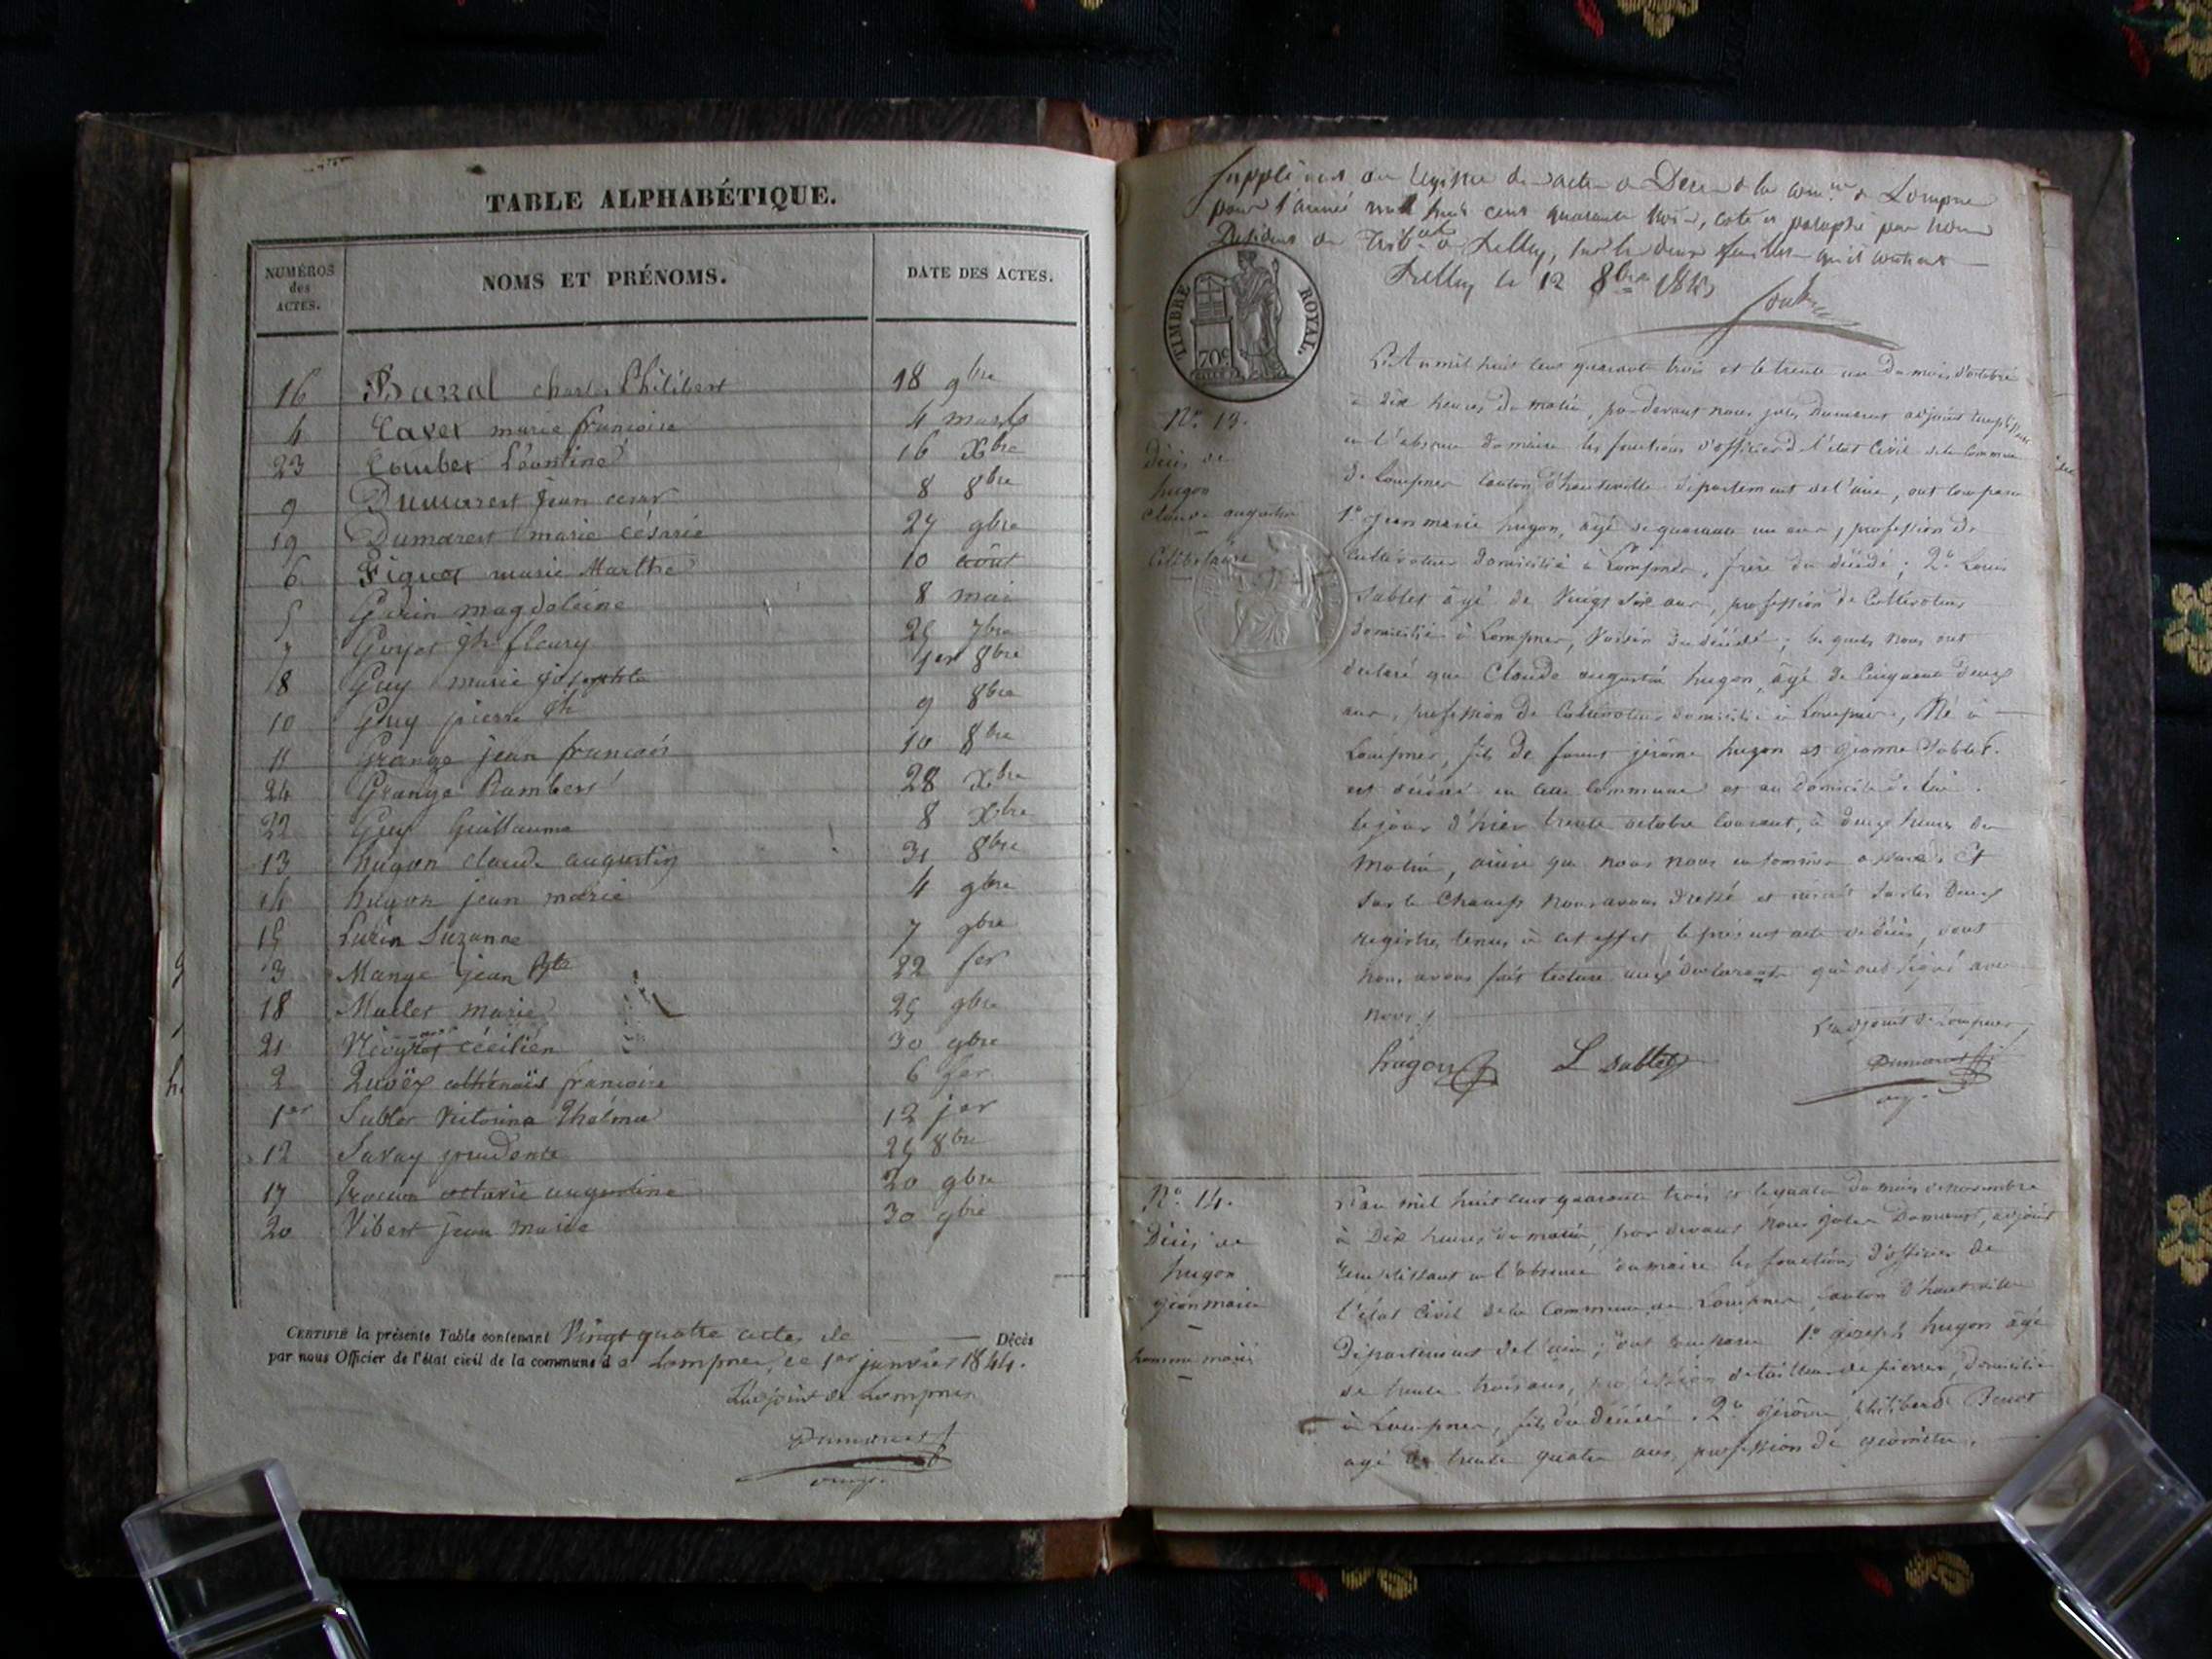 TABLE ALPHABÉTIQUE.
NUMÉROS des ACTES.
NOMS ET PRÉNOMS.
DATE DES ACTES.
16 Barral Charles Philibert 18 9bre
4 Cavet marie françoise 4 mars
23 Combet Léontine 16 Xbre
9 Dumarest Jean 8 8bre
19 Dumarest marie césarie 27 9bre
6 Figuet marie Marthe 10 août
5 Gorin magdeleine 8 mai
7 Guyot jh fleury 25 7bre
8 Guy marie josephte 1er 8bre
10 Guy pierre jh 9 8bre
11 Grange jean françois 10 8bre
24 Grange Rambert 28 Xbre
22 Guy Guillaume 8 Xbre
13 hugon claude augustin 31 8bre
14 hugon jean marie 4 9bre
15 Luzin Suzanne 7 9bre
3 Mange jean Bte 22 fer
18 Mallet marie 25 9bre
21 cécilien 30 9bre
2 françoise 6 fer
1er Sublet Victorine Thelma 12 jer
12 Savay prudente 25 8bre
17 octavie augustine 20 9bre
20 Vibert Jean Marie 30 9bre
CERTIFIÉ la présente Table contenant Vingt quatre actes de Décès
par nous Officier de l'état civil de la commune d e Lompnes, ce 1er janvier 1844.
L'adjoint de Lompnes
Dumarest
Supplément au Registre des actes de Décès de la comne de Lompnes
pour l'année mil huit cent quarante trois, coté et paraphé par nous
Président du Tribal de Belley, sur les deux feuilles qu'il contient
Belley le 12 8bre 1843
TIMBRE ROYAL.
70c
L'An mil huit cent quarante trois et le trente un du mois d'octobre
à dix heures du matin, par devant nous jules Dumarest adjoint remplissant
en l'absence du maire les fonctions d'officier de l'état Civil de la Commune
de Lompnes canton d'hauteville département de l'ain, ont comparu
No. 13.
Décès de
hugon
Claude augustin
Célibataire
1o jean marie hugon, âgé de quarante un ans, profession de
cultivateur domicilié à Lompnes, frère du décédé; 2o Louis
Sublet âgé de Vingt Six ans, profession de Cultivateur
domicilié à Lompnes, Voisin du décédé; les quels nous ont
déclaré que Claude augustin hugon, âgé de Cinquante Deux
ans, profession de Cultivateur domicilié à Lompnes, Né à
Lompnes, fils de jérôme hugon et jeanne Sublet.
est décédé en cette Commune et au Domicile de lui.
le jour d'hier trente octobre Courant, à deux heures du
matin, ainsi que nous nous en sommes assuré. Et
sur le Champ nous avons dressé et inscrit sur les Deux
registres tenus à cet effet le présent acte de décès, dont
nous avons fait lecture aux déclarants qui ont signé avec
nous.
L'adjoint de Lompnes,
hugon L Sublet Dumarest
No. 14.
Décès de
hugon
jean marie
homme marié
L'an mil huit cent quarante trois et le quatre du mois de novembre
à Dix heures du matin, par devant Nous jules Dumarest, adjoint
remplissant en l'absence du maire les fonctions d'officier de
l'état Civil de la Commune de Lompnes, Canton d'hauteville
Département de l'ain; ont comparu 1o joseph hugon âgé
de trente trois ans, profession de tailleur de pierres, domicilié
à Lompnes, fils du décédé. 2o jérôme philibert
âgé de trente quatre ans, profession de géomètre,